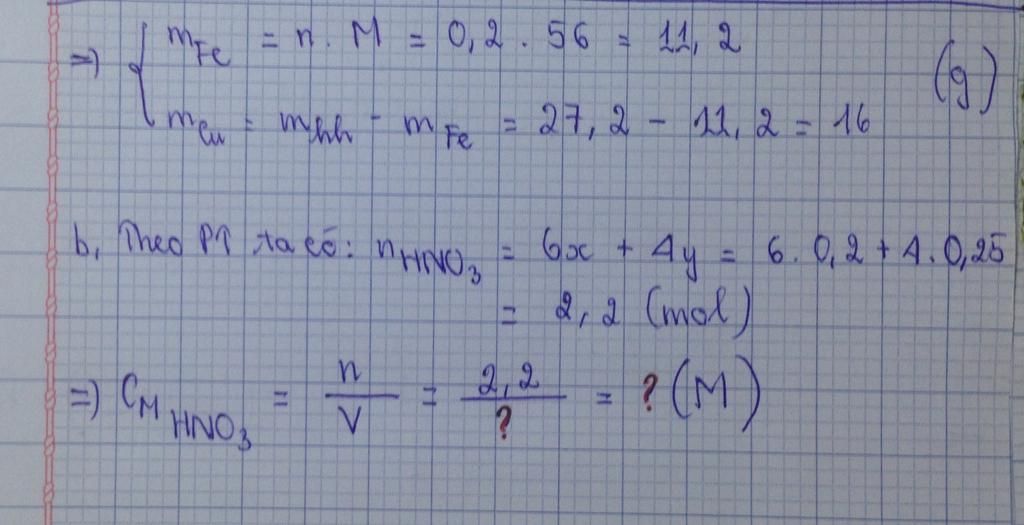 => { m Fe = n . M = 0,2 . 56 = 11,2
m Cu = m hh - m Fe = 27,2 - 11,2 = 16 (g)
b, Theo PT ta có: n HNO3 = 6x + 4y = 6 . 0,2 + 4 . 0,25
= 2,2 (mol)
=> CM HNO3 = n/V = 2,2/? = ? (M)